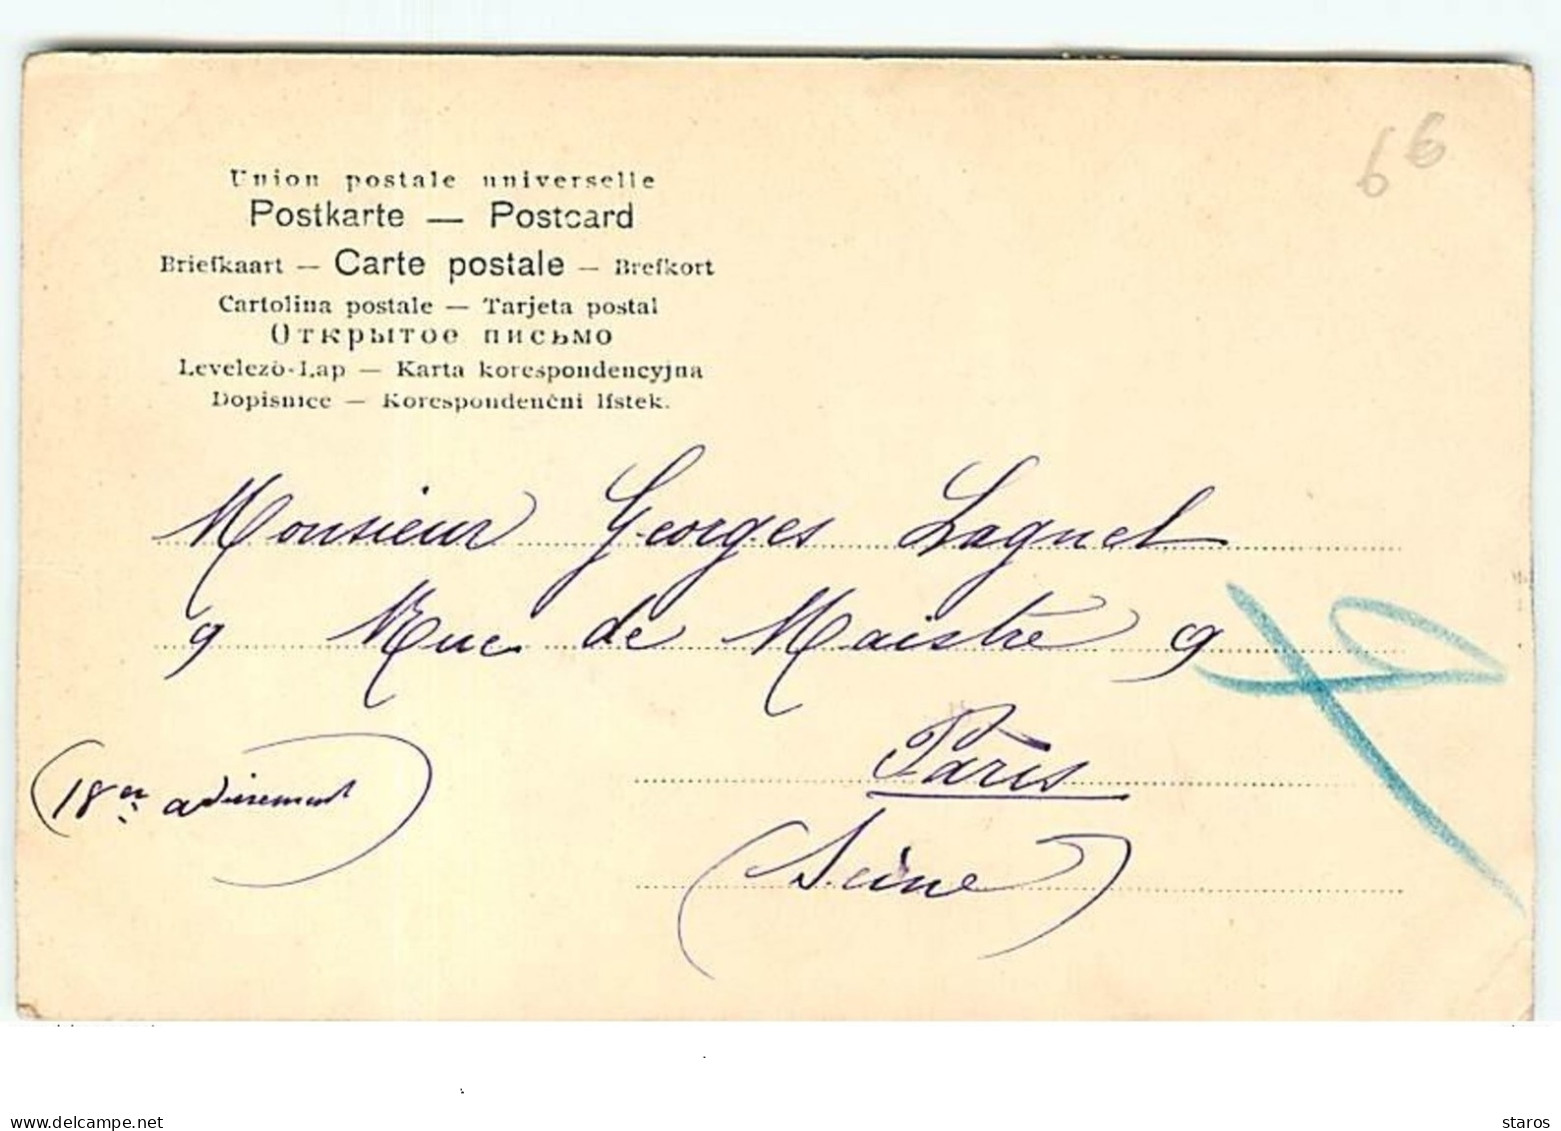 66
Union postale universelle
Postkarte — Postcard
Briefkaart — Carte postale — Brefkort
Cartolina postale — Tarjeta postal
Открытое письмо
Levelezö-Lap — Karta korespondencyjna
Dopisnice — Korespondenční lístek.
Monsieur Georges Laguel
9 Rue de Maistre 9
Paris
(18er
(Seine)
www.delcampe.net
staros